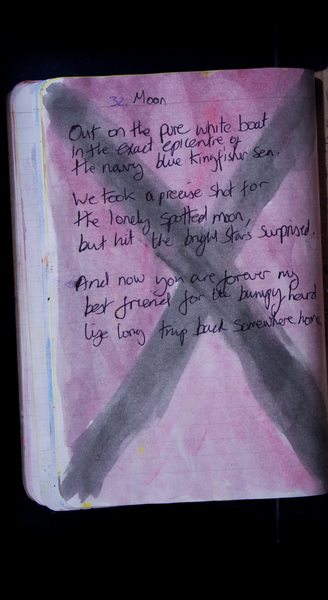 32. Moon
Out on the pure white boat
In the exact epicentre of
the navy blue kingfisher sea.
We took a precise shot for
the lonely spotted moon,
but hit the bright stars surprised.
And now you are forever my
best friend for the bumpy heard
lige long trip back somewhere home